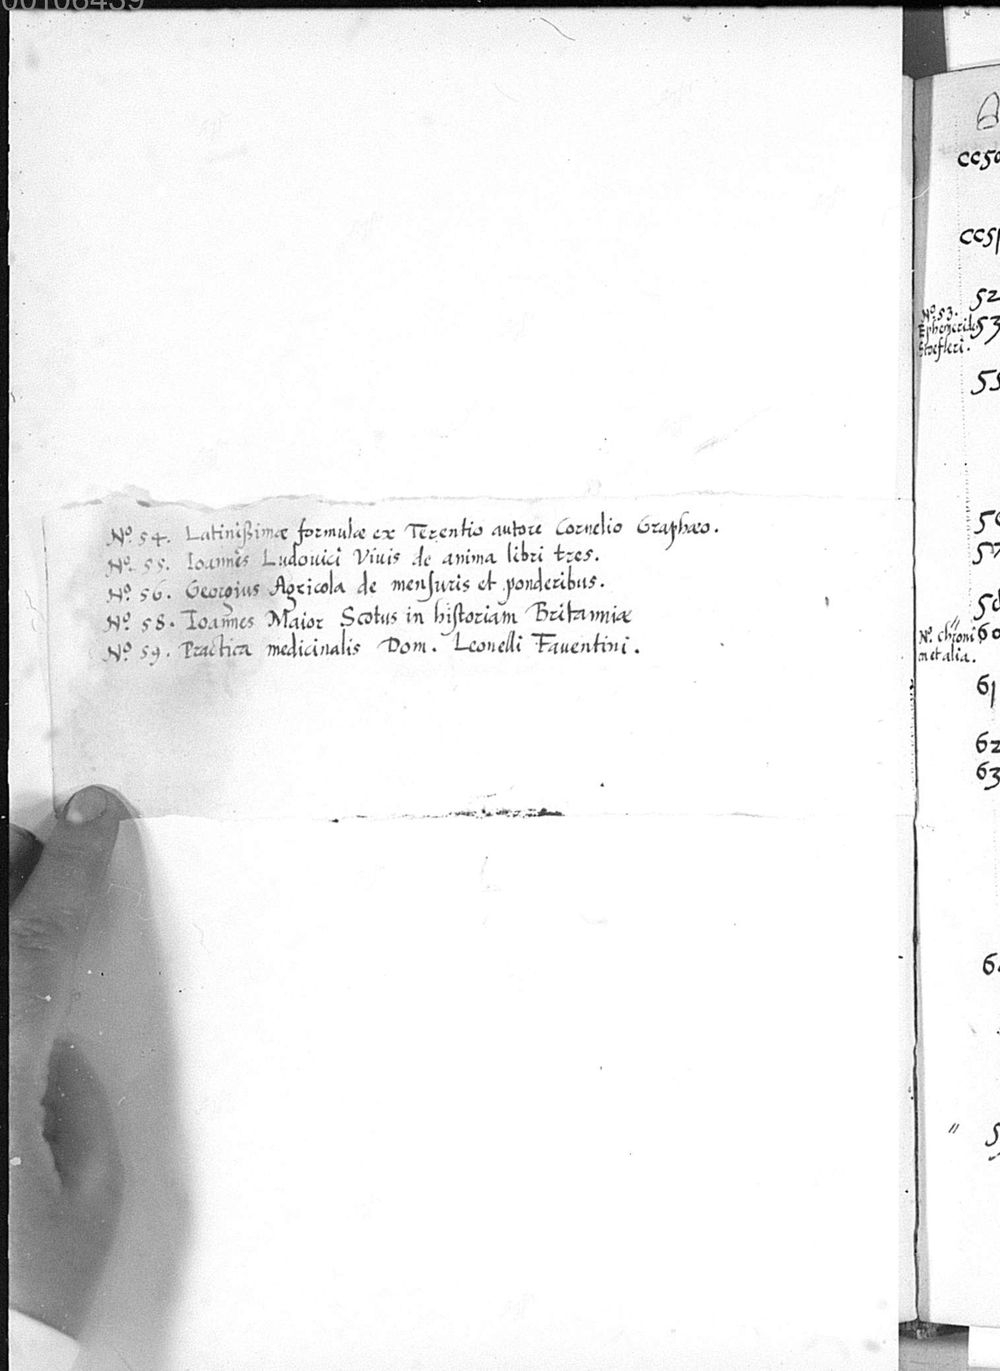 00108439
Nº. 54. Latinißimæ formulæ ex Terentio autore Cornelio Graphæo.
Nº. 55. Ioannes Ludouici Viuis de anima libri tres.
Nº. 56. Georgius Agricola de mensuris et ponderibus.
Nº. 58. Ioannes Maior Scotus in historiam Britanniæ
Nº. 59. Practica medicinalis Dom. Leonelli Fauentini.
cc50
cc51
52
Nº. 53.
Ephemerides 53
Stoefleri.
55
56
57
58
Nº. chroni 60
met alia.
61
62
63